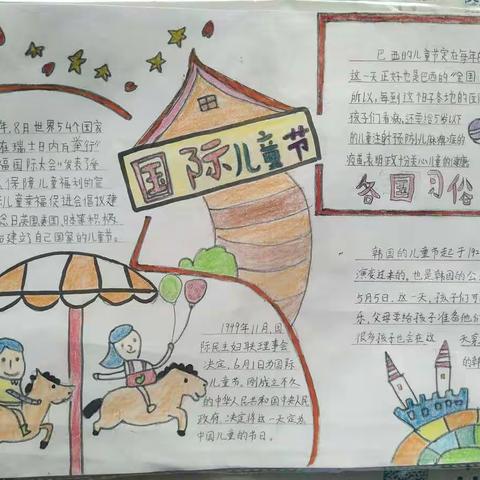 国际儿童节
年,8月世界54个国家
在瑞士日内瓦举行"
福国际大会"发表了《
保障儿童福利的宣
儿童幸福促进会倡议建
英国美国,日本等积极
建立了自己国家的儿童节。
1949年11月,国
际民主妇联理事会
决定,6月1日为国际
儿童节。刚成立不久
的中华人民共和国中央人民
政府,决定将这一天定为
中国儿童的节日。
巴西的儿童节定在每年的
这一天正好也是巴西的"全国
所以,每到这个日子各地的医
孩子们看病,还要给5岁以下
的儿童注射预防小儿麻痹症的
疫苗,表明政府关心儿童的健康
各国习俗
韩国的儿童节起于192
演变过来的,也是韩国的公
5月5日,这一天,孩子们可
乐,父母要给孩子准备他们
很多孩子也会在这 天穿
的韩